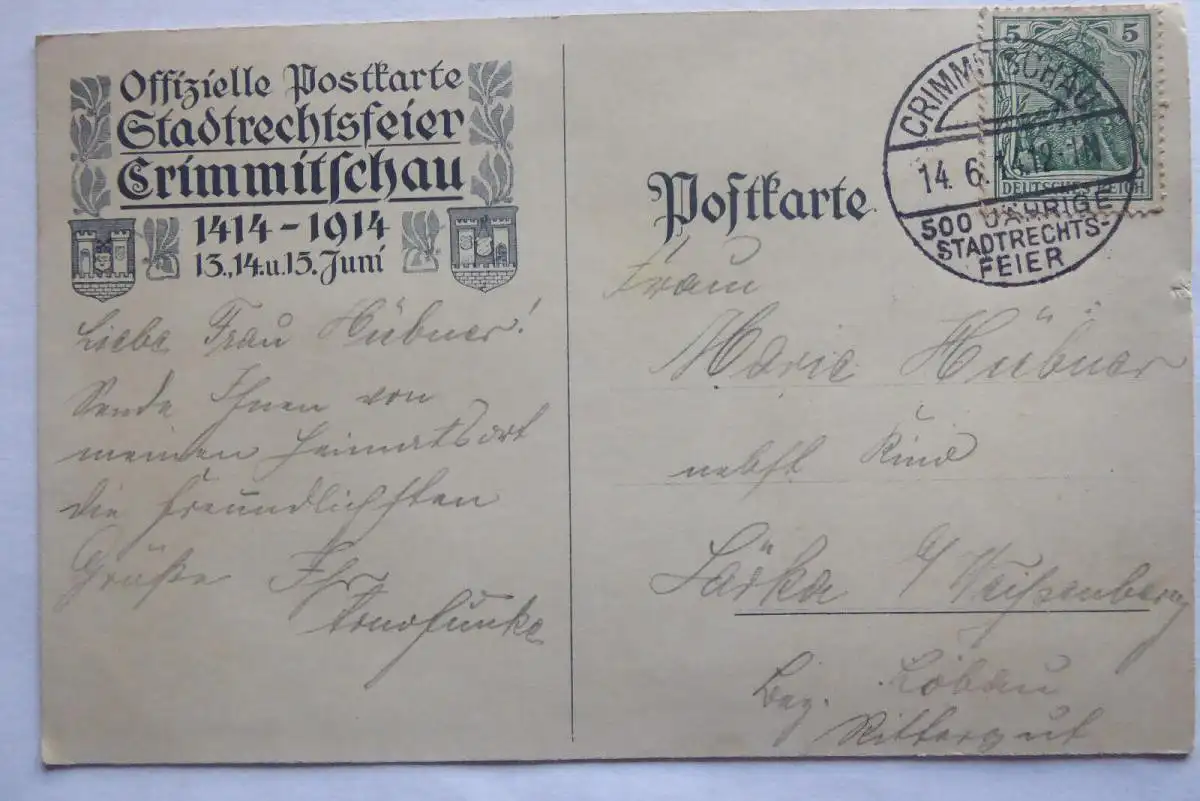 Offizielle Postkarte
Stadtrechtsfeier
Crimmitſchau
1414-1914
13., 14. u. 15. Juni
Liebe Frau Hübner!
Sende Ihnen von
meinen Heimatsort
die freundlichſten
Grüße Ihr
Postkarte
5 5
DEUTSCHES REICH
CRIMMITSCHAU
14. 6. 14. 12-1 N
500 JÄHRIGE
STADTRECHTS-
FEIER
Frau
Marie Hübner
nebſt Kind
Särka b/ Weißenberg
Bez. Löbau
Rittergut